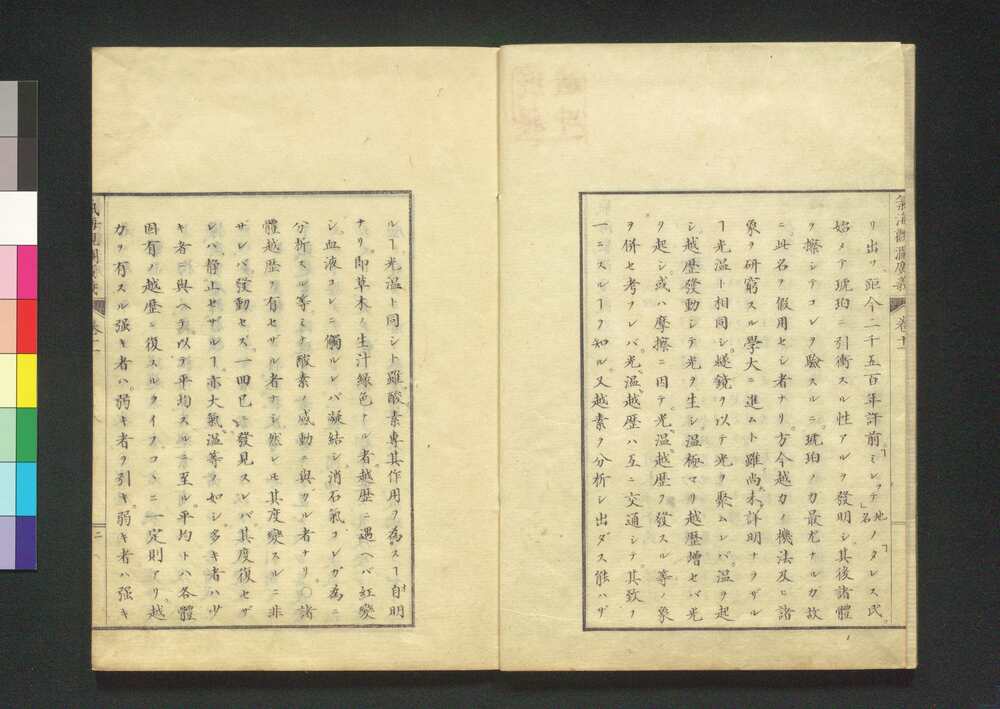 氣海觀瀾廣義 卷十一
リ出ツ、距今二千五百年許前ミレテ地名ノタレス氏
始メテ琥珀ニ引衝スル性アルヲ發明シ其後諸體
ヲ擦シテコレヲ驗スルニ琥珀ノ力最尤ナルカ故
ニ此名ヲ假用セシ者ナリ方今越力ノ機法及ヒ諸
象ヲ研窮スル學大ニ進ムト雖尚未詳明ナラザル
ー光温ト相同シ燧鏡ヲ以テ光ヲ聚ムレバ温ヲ起
シ越歷發動シテ光ヲ生シ温極マリ越歷增セバ光
ヲ起シ或ハ摩擦ニ因テ光温越歷ヲ發スル等ノ象
ヲ併セ考フレバ光温越歷ハ互ニ交通シテ其致ヲ
一ニスルーヲ知ル又越素ヲ分析シ出ダス能ハザ
ルー光温ト同シト雖酸素專其作用ヲ為スー自明
ナリ即草木ノ生汁綠色ナル者越歷ニ遇ヘバ紅變
シ血液コレニ觸ルレバ凝結シ消石氣コレガ為ニ
分析スル等ミナ酸素ノ感動ニ與カル者ナリ〇諸
體越歷ヲ有セザル者ナシ然レモ其度變スルニ非
ザレバ發動セズ一四已ニ發見スレバ其度復セザ
レバ靜止セザルー亦大氣温等ノ如シ多キ者ハ少
キ者ニ與ヘテ以テ平均スルニ至ル平均トハ各體
固有ノ越歷ニ復スルヲイフコヽニ一定則アリ越
力ヲ有スル强キ者ハ弱キ者ヲ引キ弱キ者ハ强キ
氣海觀瀾廣義 卷十一 二